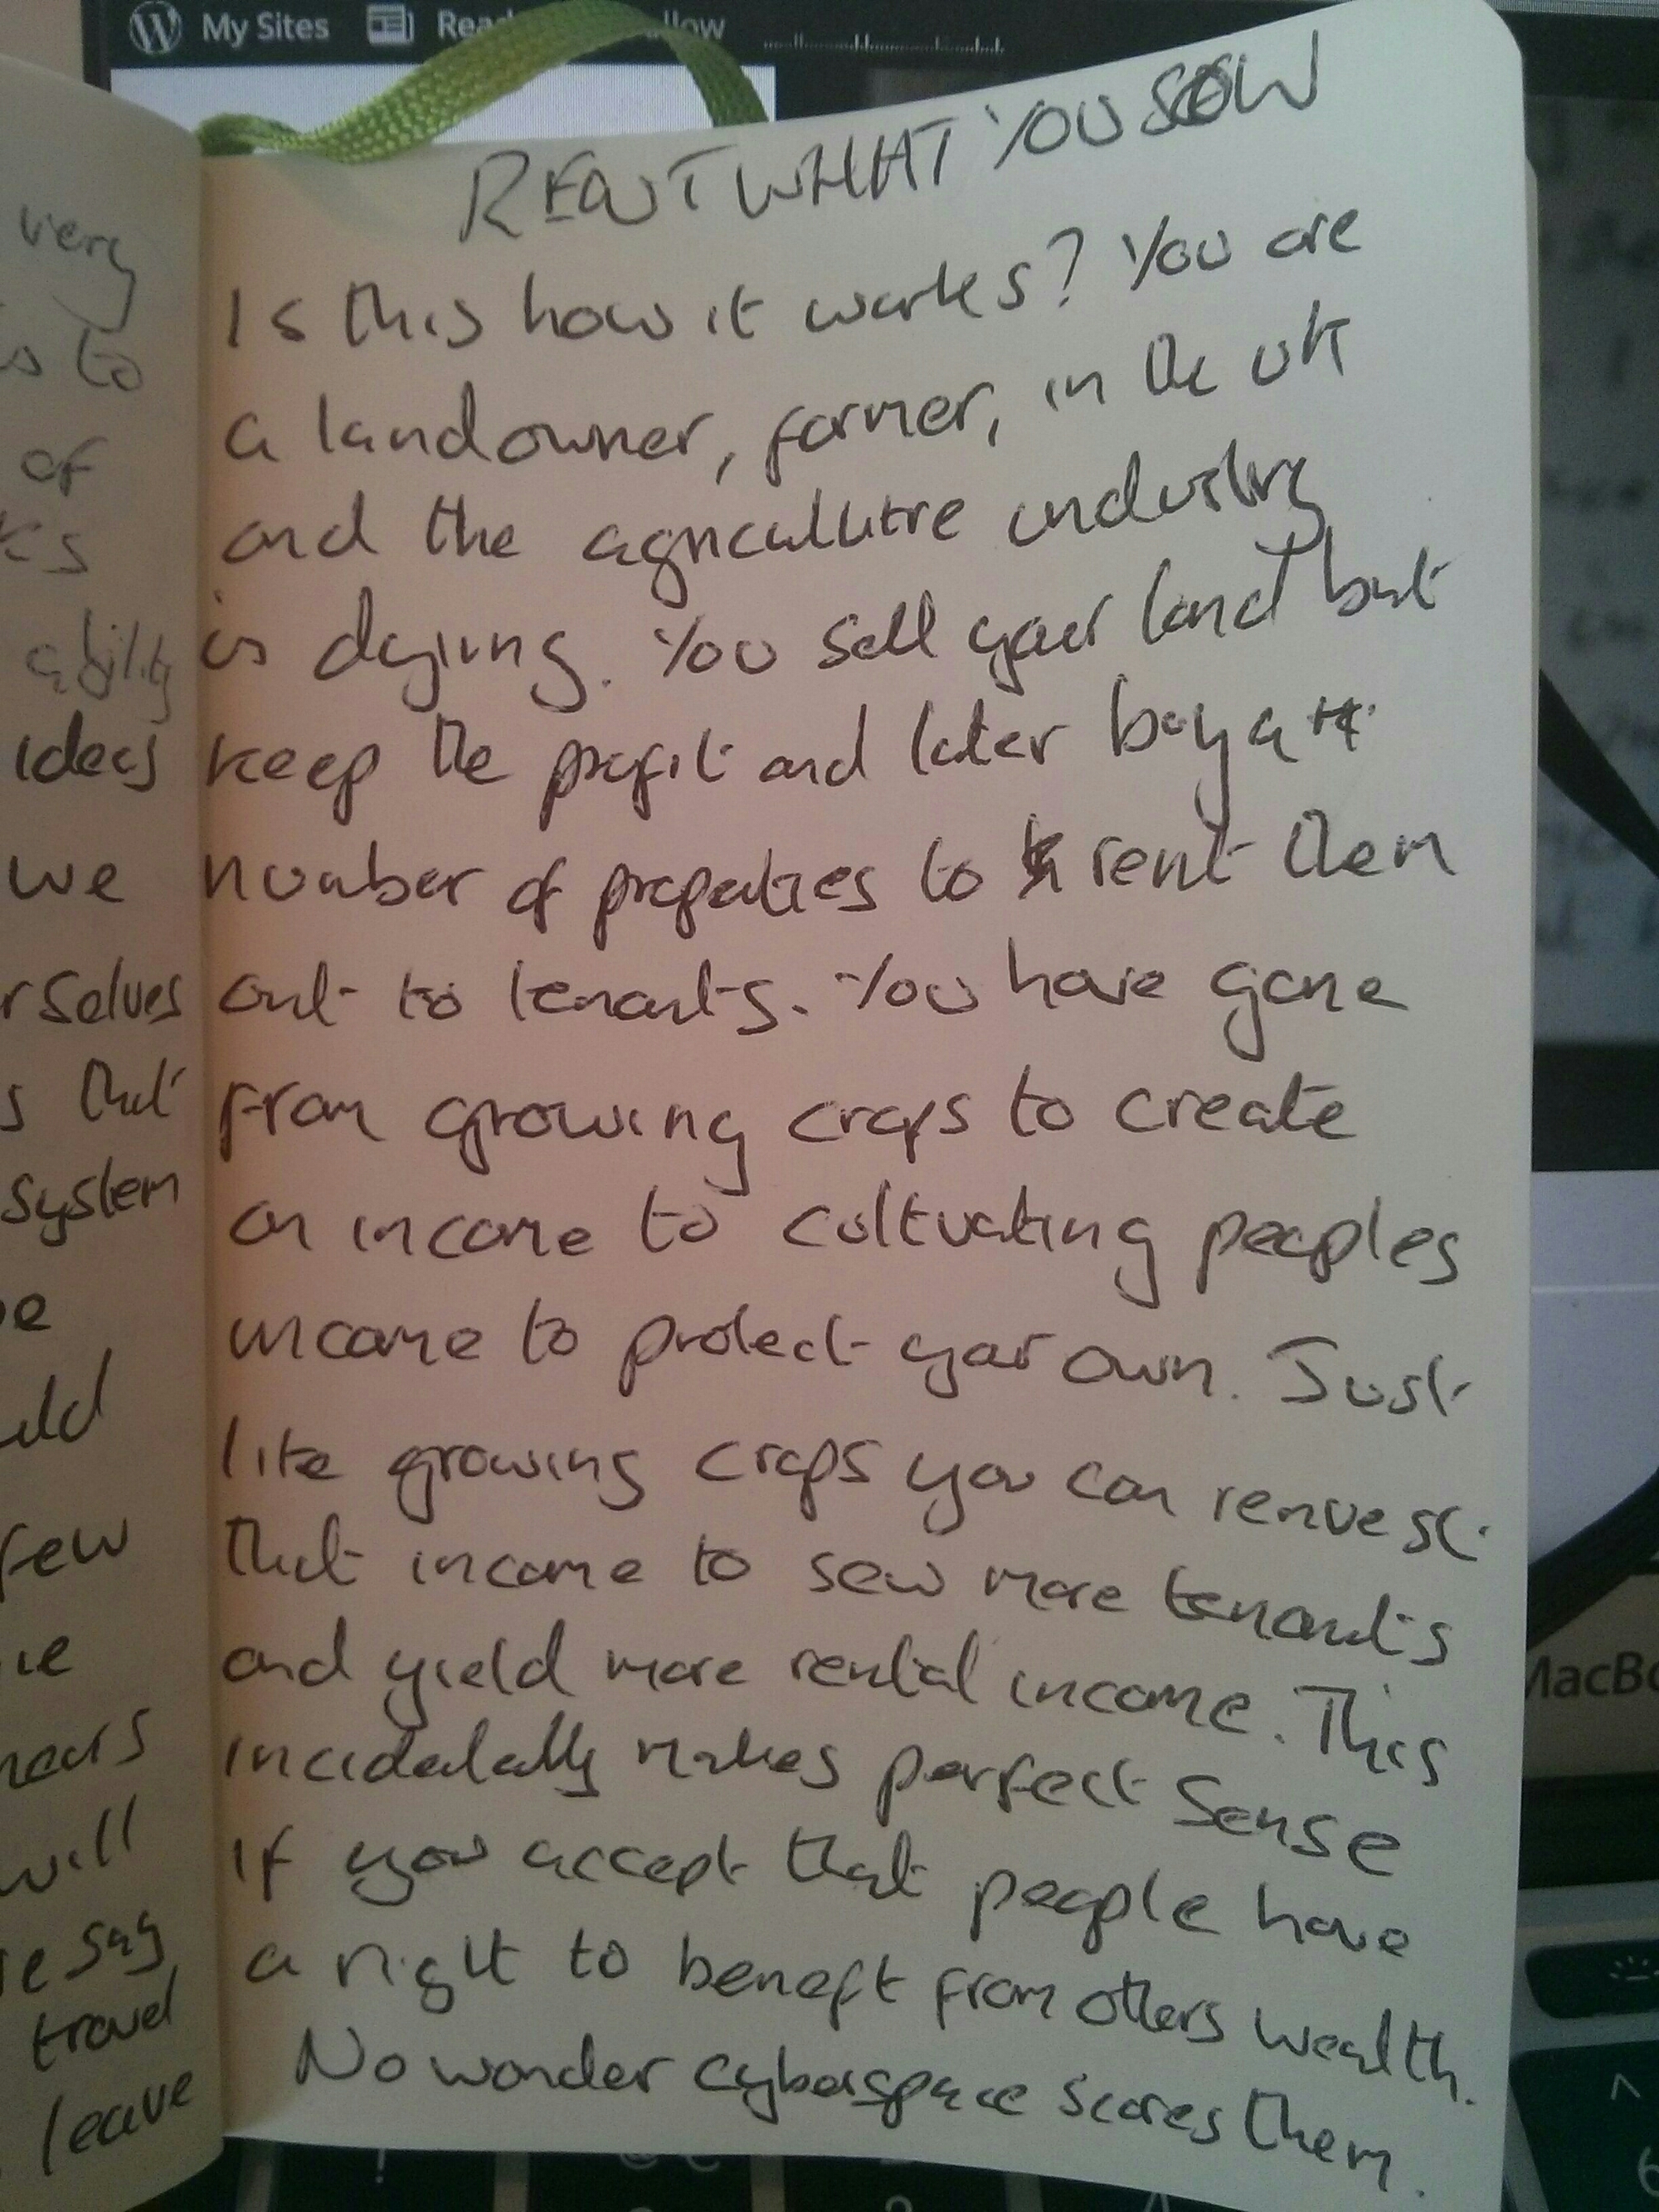 My Sites
RENT WHAT YOU SOW
Is this how it works? You are
a landowner, farmer, in the UK
and the agricullture industry
is dying. You sell your land but
keep the profit and later buy a
number of properties to rent them
out to tenants. You have gone
from growing crops to create
an income to cultivating peoples
income to protect your own. Just
like growing crops you can reinvest
that income to sew more tenants
and yield more rental income. This
incidentally makes perfect sense
if you accept that people have
a right to benefit from others wealth.
No wonder cyberspace scares them.
very
to
of
ability
ideas
we
that
system
few
will
say
travel
leave
MacBo